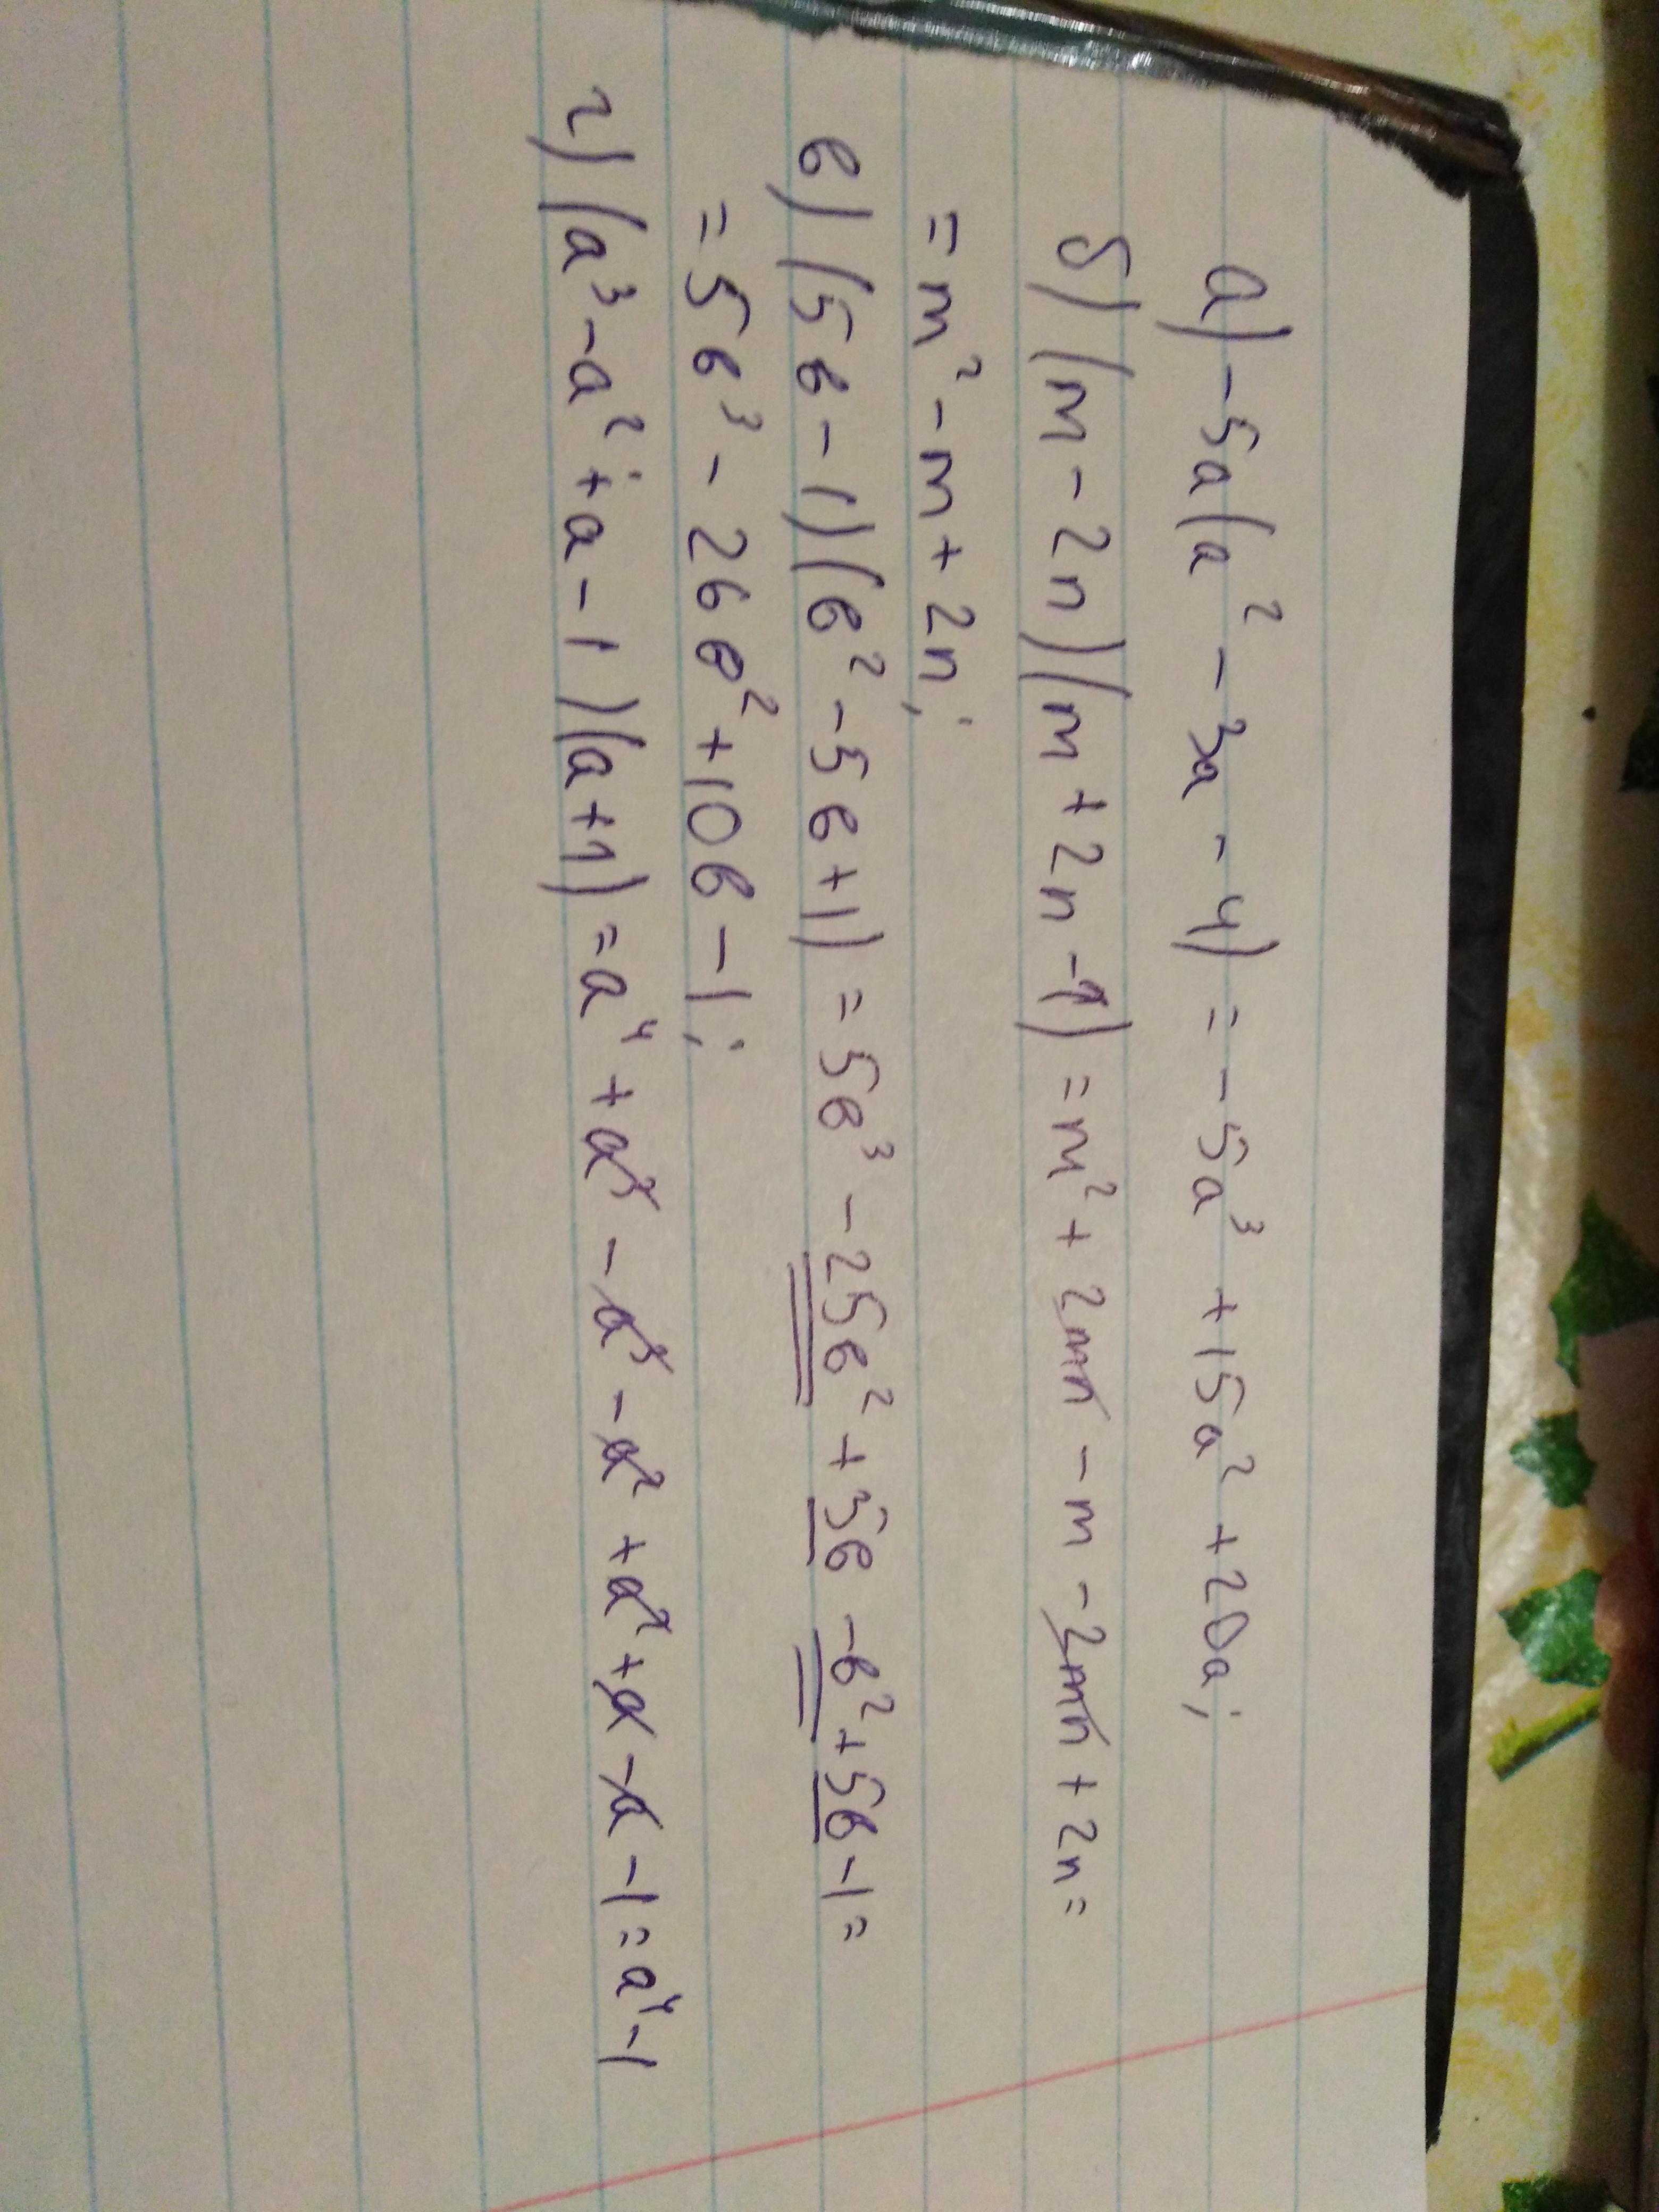 а) -5a(a² - 3a - 4) = -5a³ + 15a² + 20a;
б) (m - 2n)(m + 2n - 1) = m² + 2mn - m - 2mn + 2n =
= m² - m + 2n;
в) (5в - 1)(в² - 5в + 1) = 5в³ - 25в² + 5в - в² + 5в - 1 =
= 5в³ - 26в² + 10в - 1;
г) (a³ - a² + a - 1)(a + 1) = a⁴ + a³ - a³ - a² + a² + a - a - 1 = a⁴ - 1